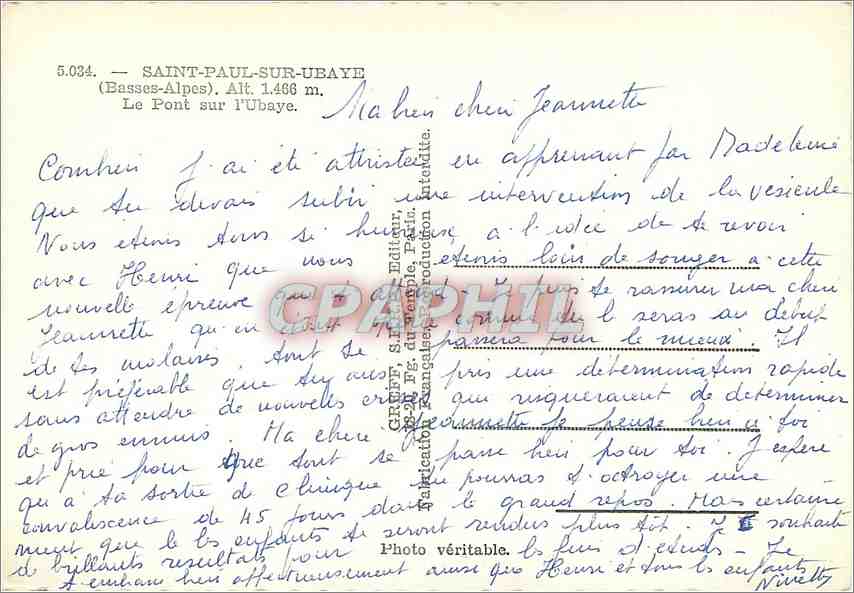 5.034. — SAINT-PAUL-SUR-UBAYE
(Basses-Alpes). Alt. 1.466 m.
Le Pont sur l'Ubaye.
Ma bien chère Jeannette
Combien j'ai été attristée en apprenant par Madeleine
que tu devais subir une intervention de la vésicule
Nous étions tous si heureux à l'idée de te revoir
avec Henri que nous étions loin de songer à cette
nouvelle épreuve qui t'attend - Je puis te rassurer ma chère
Jeannette qu'en étant comme tu le seras au début
de tes molaires, tout se passera pour le mieux. Il
est préférable que tu aies pris une détermination rapide
sans attendre de nouvelles crises qui risqueraient de déterminer
de gros ennuis. Ma chère Jeannette je pense bien à toi
et prie pour que tout se passe bien pour toi. J'espère
qu'à ta sortie de clinique tu pourras t'octroyer une
convalescence de 45 jours dans le grand repos. Mais certaine
ment que les enfants se seront rendus plus tôt. Je souhaite
de brillants résultats pour les fins d'études - Je
t'embrasse bien affectueusement ainsi que Henri et tous les enfants
Ninette
GREFF, S. Editeur,
18-20, Fg. du Temple, Paris.
Fabrication Française. Reproduction interdite.
Photo véritable.
CPAPHIL